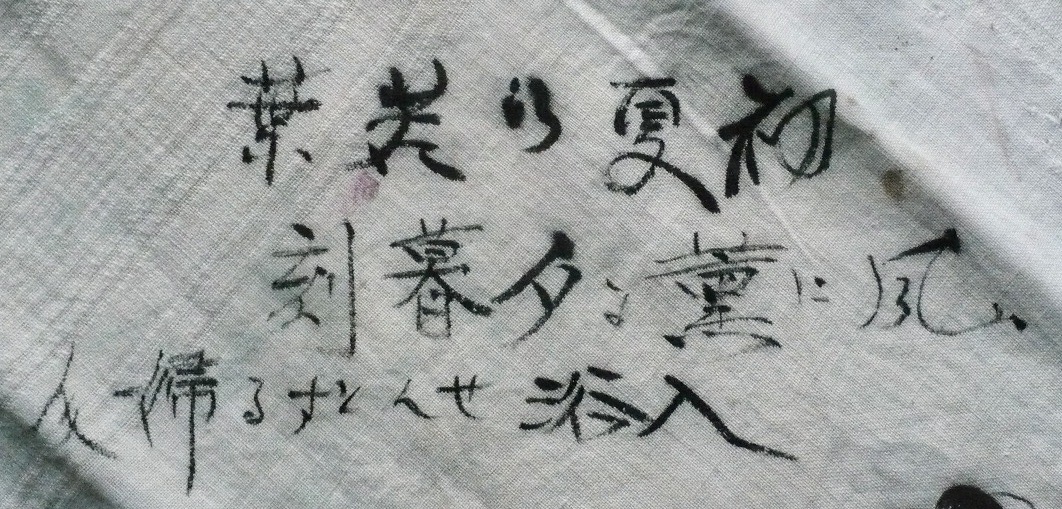 初夏の若葉
風に薫る夕暮刻
入浴せんとする帰